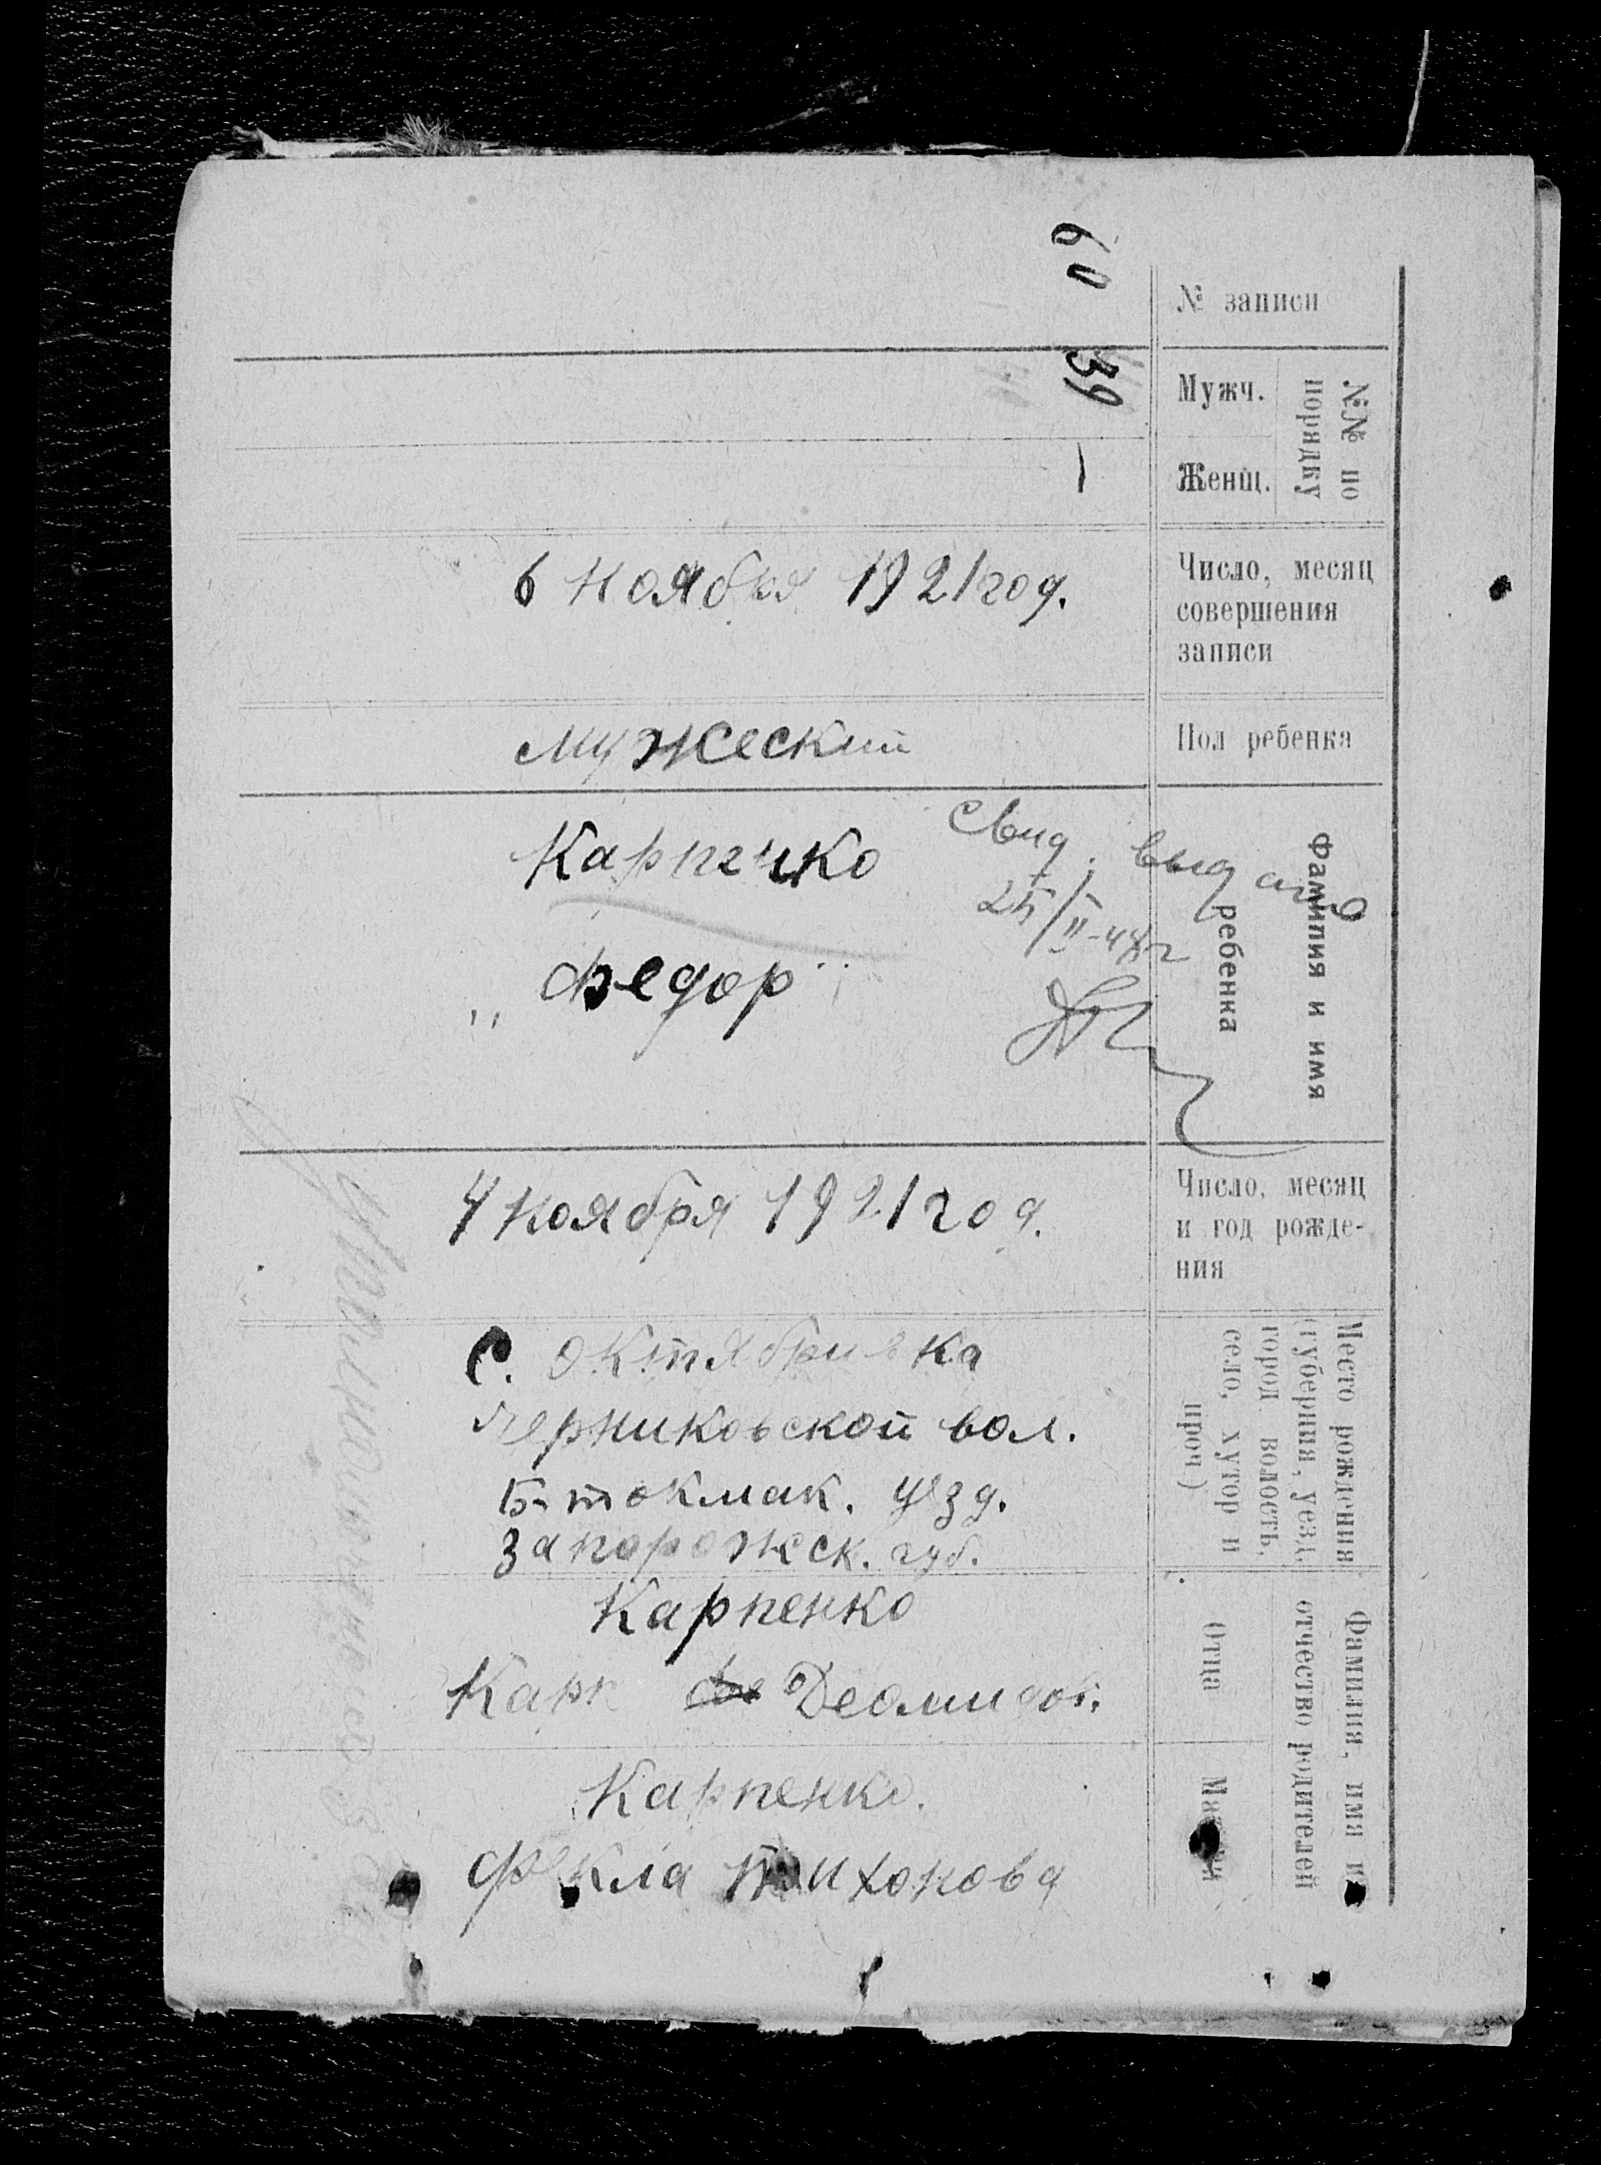 60
№ записи
39
Мужч.
№№ по
порядку
—
Женщ.
6 ноября 1921 год.
Число, месяц
совершения
записи
мужеский
Пол ребенка
Карпенко
„Федор"
Свид. выдано
25/II-48г
Фамилия и имя
ребенка
4 ноября 1921 год.
Число, месяц
и год рожде-
ния
с. Октябривка
Черниковской вол.
Б-токмак. уезд.
Запорожск. губ.
Место рождения
(губерния, уезд,
город волость,
село, хутор и
проч)
Карпенко
Карп Деомидов.
Отца
Карпенко.
Фекла Тихонова
Матери
Фамилия, имя и
отчество родителей